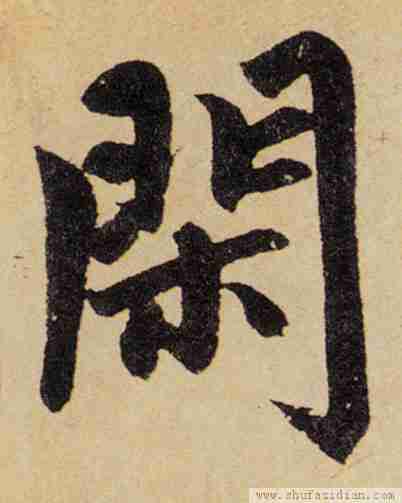 閑
www.shufazidian.com